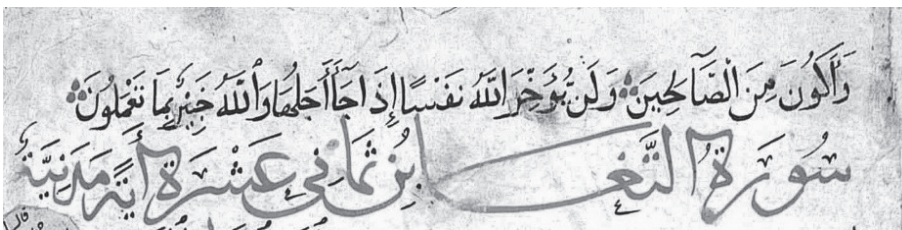 وَأَكُونَ مِنَ الصَّآلِحِينَ وَلَن يُؤَخِّرَ اللَّهُ نَفْسًا إِذَا جَآ أَجَلُهَا وَاللَّهُ خَبِيرٌ بِمَا تَعْمَلُونَ
سُورَةُ التَّغَابُنِ ثَمَانِى عَشْرَةَ أَيَةً مَدَنِيَّةٌ